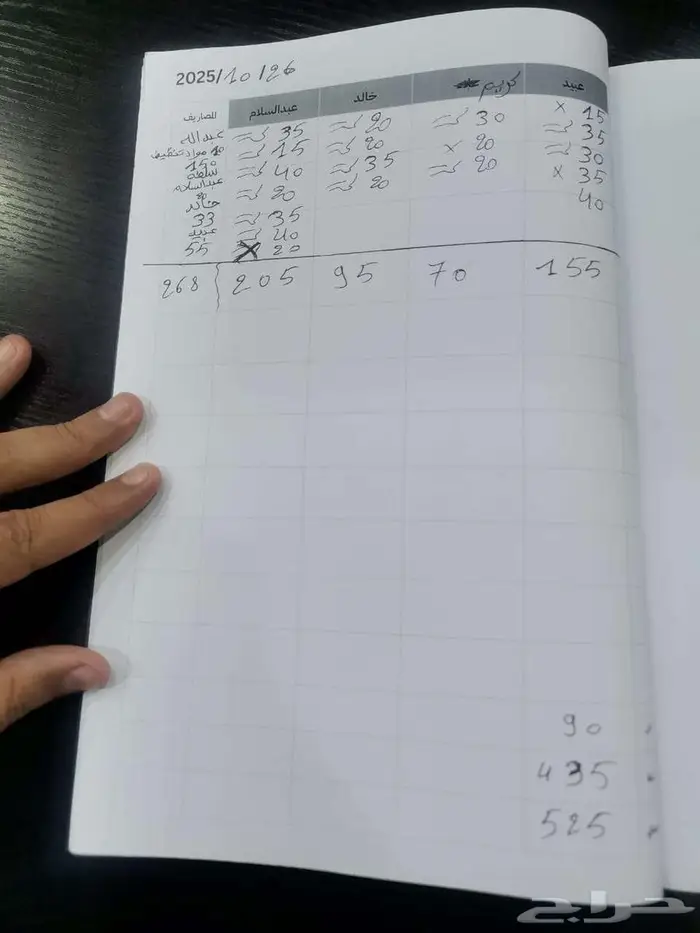 2025/10/26
عبيد كريم خالد عبدالسلام المصاريف
× 15 ≈ 30 ≈ 20 ≈ 35 عبدالله
≈ 35 × 20 ≈ 20 ≈ 15 10 مواد تنظيف
≈ 30 ≈ 20 ≈ 35 ≈ 40 150 سلفة
× 35 ≈ 20 ≈ 20 عبدالسلام
40 ≈ 35 خالد
33
≈ 40 عبيد
× 20 55
155 70 95 205 268
90
435
525
حراج